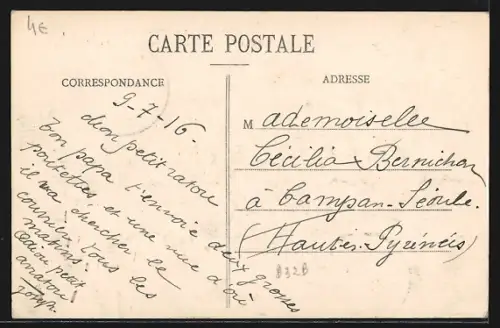 4€
CARTE POSTALE
CORRESPONDANCE
ADRESSE
9-7-16
Mon petit ratou
Ton papa t'envoie deux grosses
poutettes et une vue d'où
il va chercher le
courrier tous les
matins.
Adieu petit
anatou
papa
Mademoiselle
Cécilia Bernichan
à Campan-Séoube
(Hautes Pyrénées)
832B